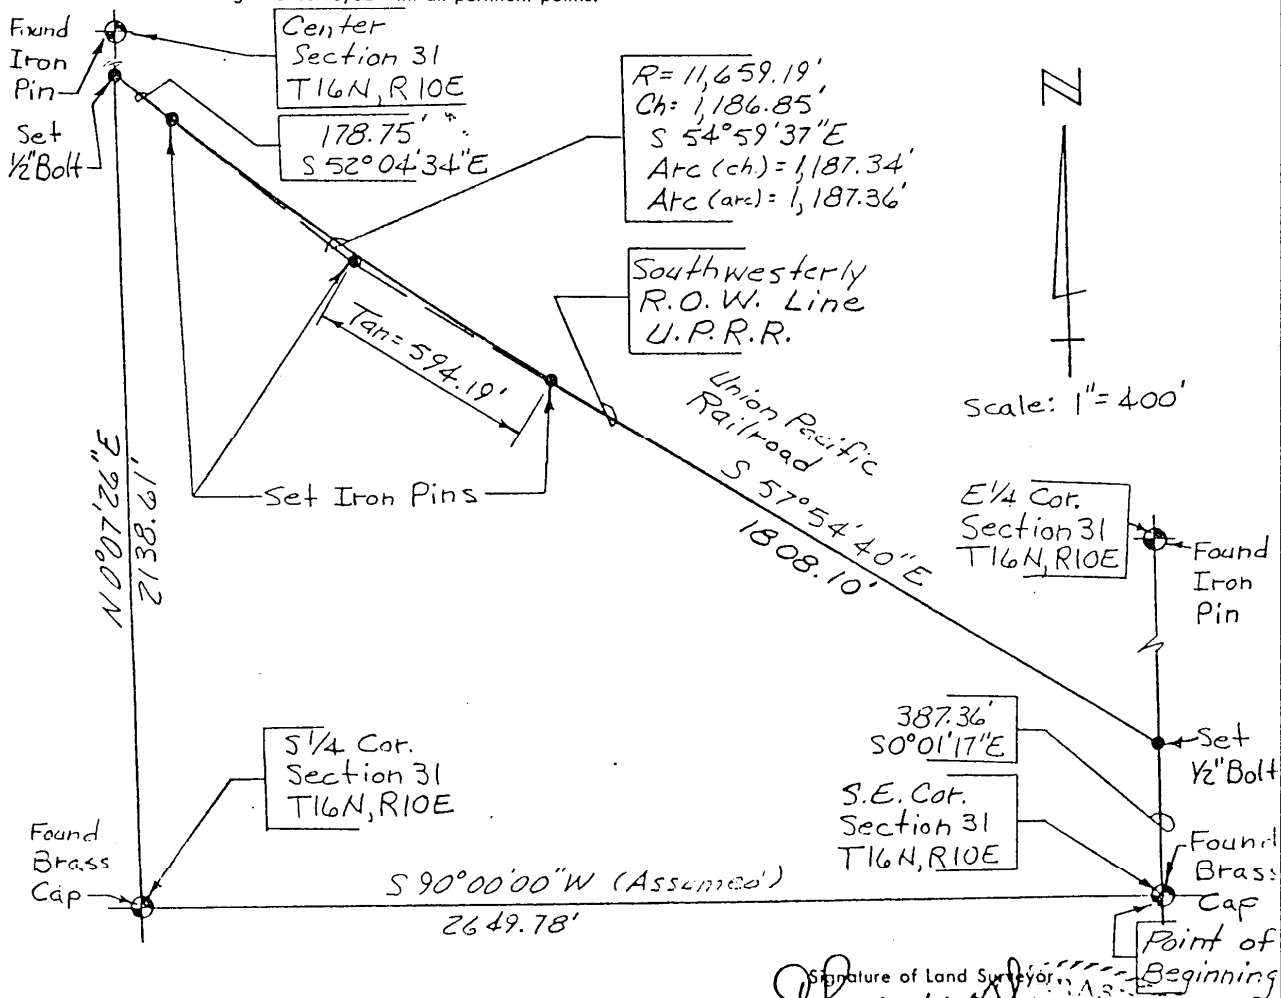 Found
Iron
Pin
Center
Section 31
T16N, R10E
Set
1/2" Bolt
178.75'
S 52°04'34"E
R= 11,659.19'
Ch: 1,186.85'
S 54°59'37"E
Arc (ch.) = 1,187.34'
Arc (arc) = 1,187.36'
N
Southwesterly
R.O.W. Line
U.P.R.R.
Scale: 1"= 400'
Tan= 594.19'
Union Pacific
Railroad
S 57°54'40"E
1808.10'
Set Iron Pins
N0°07'26"E
2138.61'
E1/4 Cor.
Section 31
T16N, R10E
Found
Iron
Pin
387.36'
S0°01'17"E
Set
1/2" Bolt
S1/4 Cor.
Section 31
T16N, R10E
S.E. Cor.
Section 31
T16N, R10E
Found
Brass
Cap
Found
Brass
Cap
S 90°00'00"W (Assumed)
2649.78'
Point of
Beginning
Signature of Land Surveyor